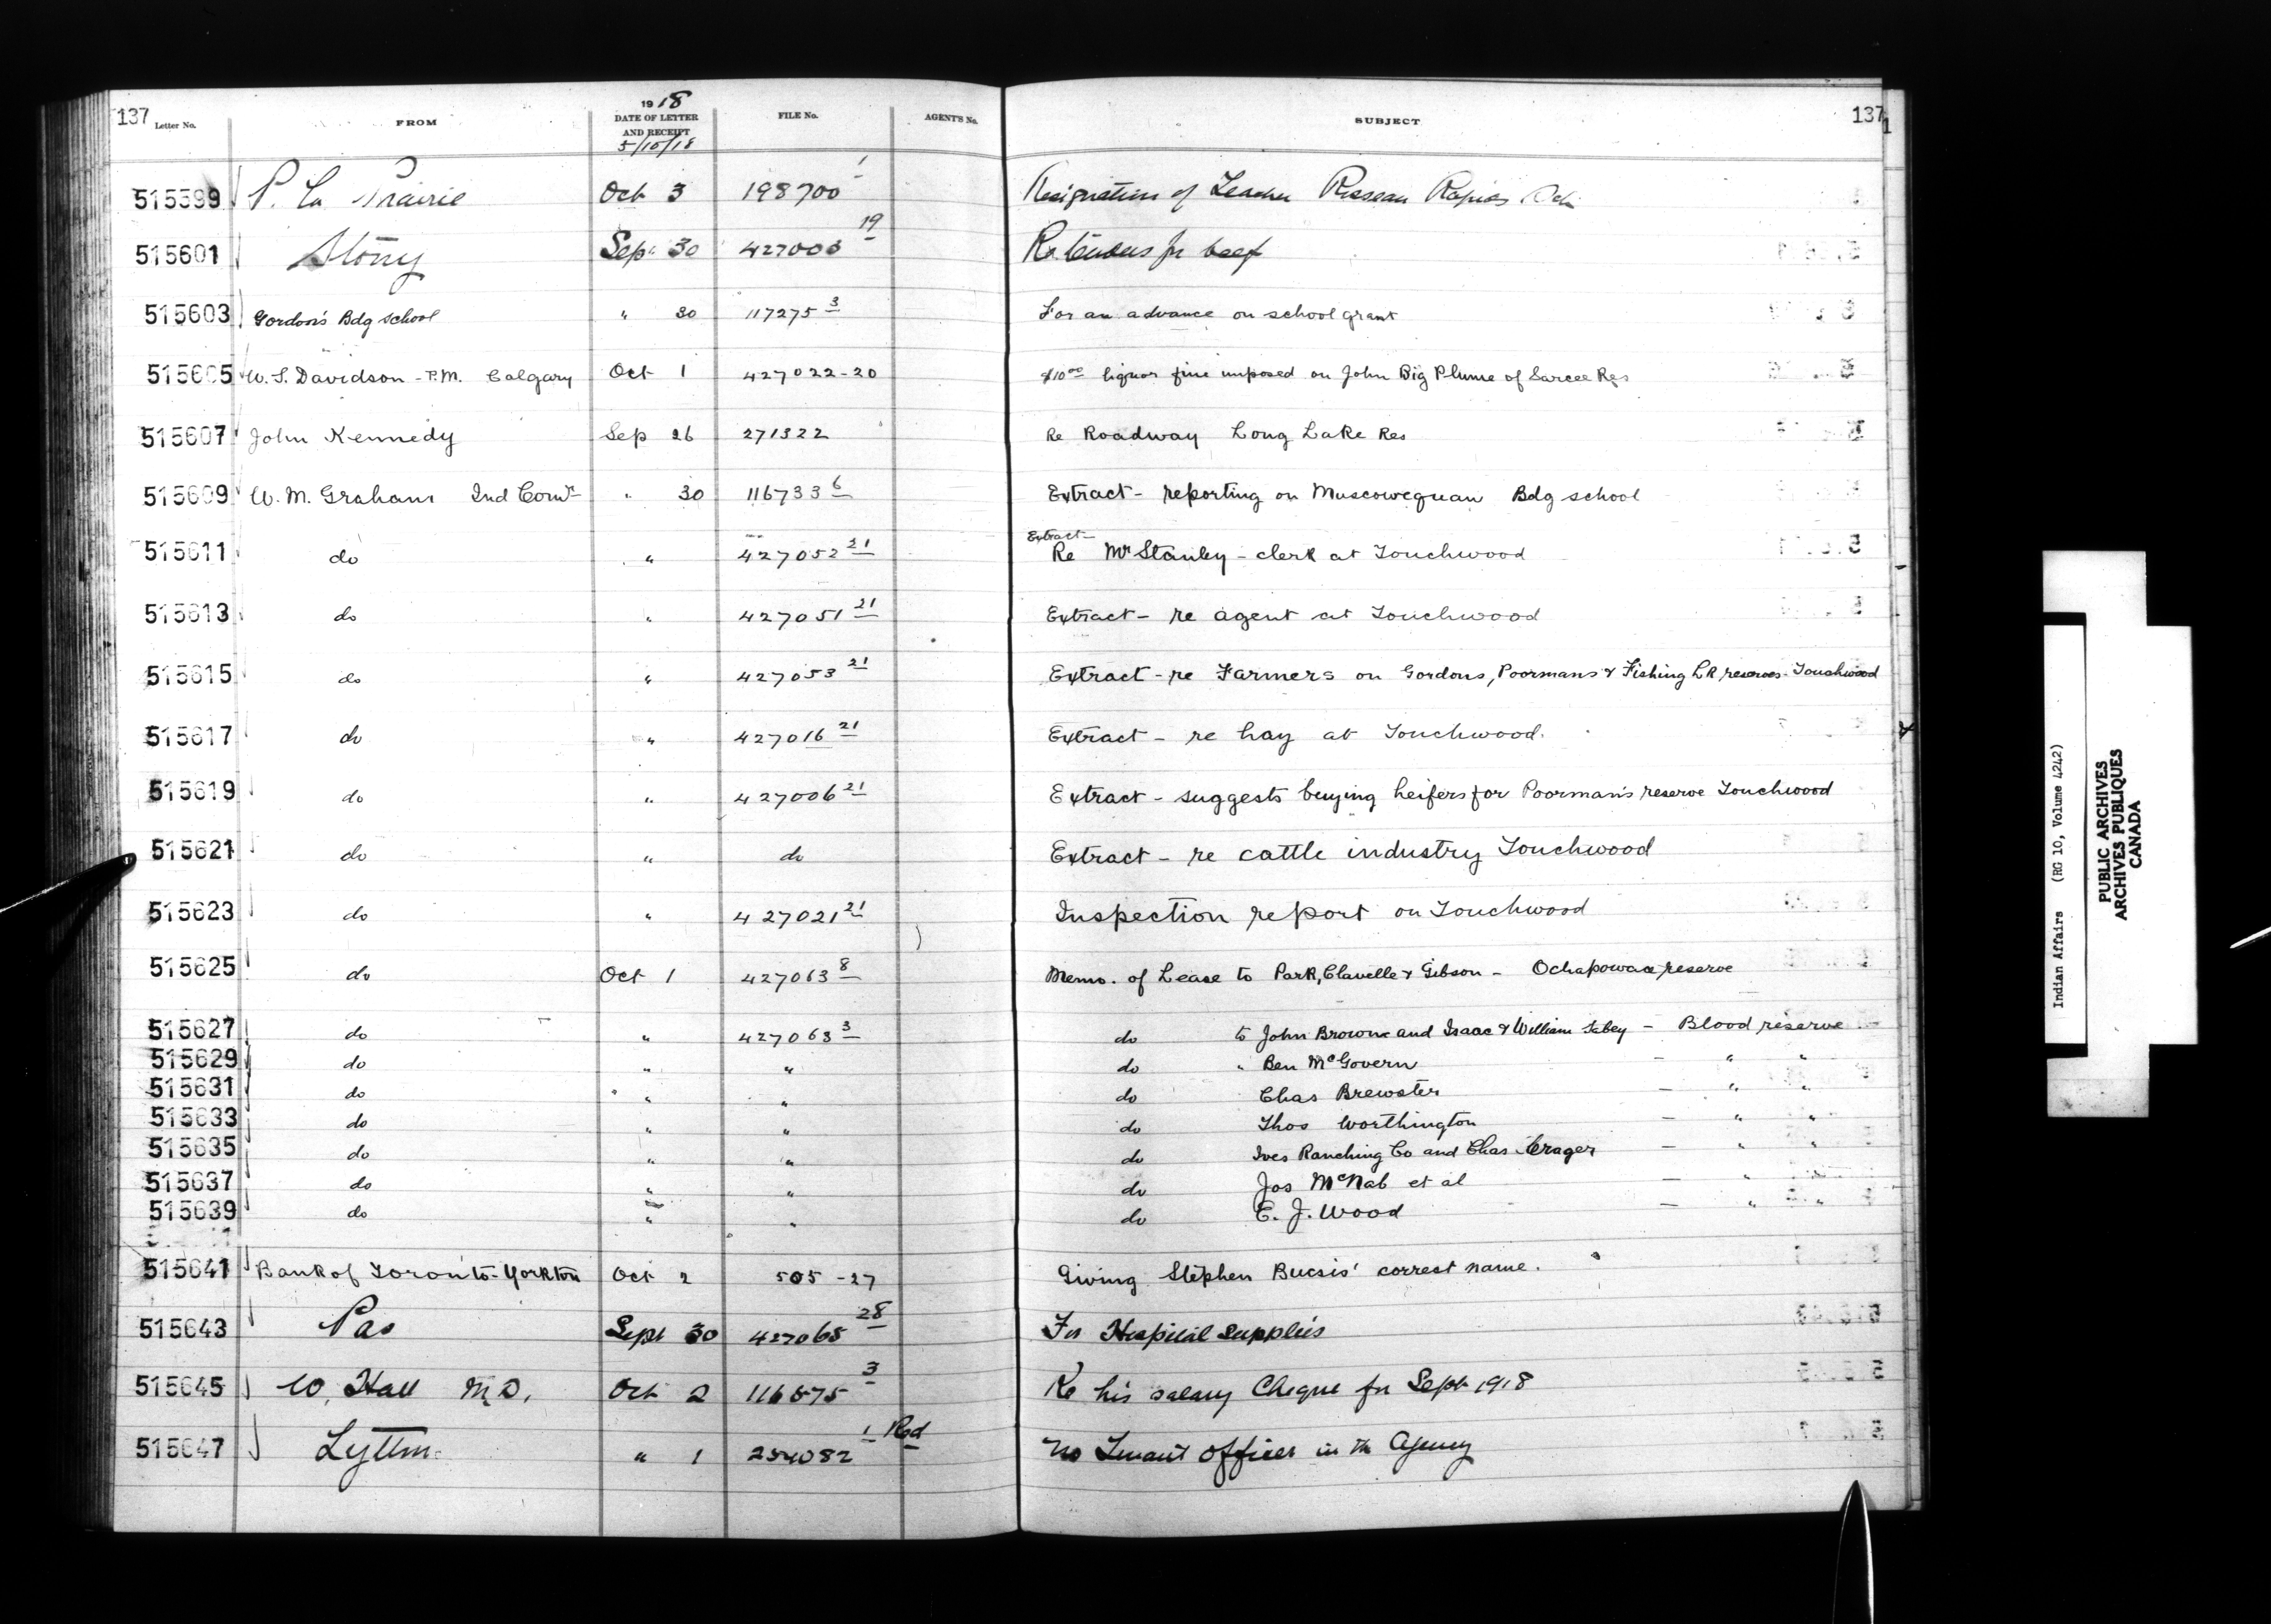 137 Letter No. FROM 1918 DATE OF LETTER AND RECEIPT 5/10/18 FILE No. AGENT'S No. SUBJECT 137
515599 P. La Prairie Oct 3 198700 1 Resignation of Teacher Roseau Rapids Sch
515601 Stony Sep. 30 427003 19 Re tenders for beef
515603 Gordon's Bdg school " 30 117275 3 For an advance on school grant
515605 W. S. Davidson - P.M. Calgary Oct 1 427022-20 $10 00 liquor fine imposed on John Big Plume of Sarcee Res
515607 John Kennedy Sep 26 271322 Re Roadway Long Lake Res
515609 W. M. Graham Ind Comr " 30 116733 6 Extract - reporting on Muscowequan Bdg school
515611 do " 427052 21 Extract - Re Mr Stanley - clerk at Touchwood
515613 do " 427051 21 Extract - re agent at Touchwood
515615 do " 427053 21 Extract - re Farmers on Gordons, Poormans & Fishing LK reserves - Touchwood
515617 do " 427016 21 Extract - re hay at Touchwood.
515619 do " 427006 21 Extract - suggests buying heifers for Poorman's reserve Touchwood
515621 do " do Extract - re cattle industry Touchwood
515623 do " 427021 21 Inspection report on Touchwood
515625 do Oct 1 427063 8 Memo. of Lease to Park, Clavelle & Gibson - Ochapowace reserve
515627 do " 427063 3 do to John Browne and Isaac & William - Blood reserve
515629 do " " do " Ben McGovern - " "
515631 do " " do Chas Brewster - " "
515633 do " " do Thos Worthington - " "
515635 do " " do Ives Ranching Co and Chas Crager - " "
515637 do " " do Jos McNab et al - " "
515639 do " " do E. J. Wood - " "
515641 Bank of Toronto - Yorkton Oct 2 505-27 Giving Stephen Bucsis' correct name.
515643 Pas Sept 30 427065 28 For Hospital supplies
515645 W. Hall M.D. Oct 2 116575 3 Re his salary Cheque for Sept 1918
515647 Lytton " 1 254082 1 Red No Truant Officer in the Agency
Indian Affairs (RG 10, Volume 4242)
PUBLIC ARCHIVES
ARCHIVES PUBLIQUES
CANADA